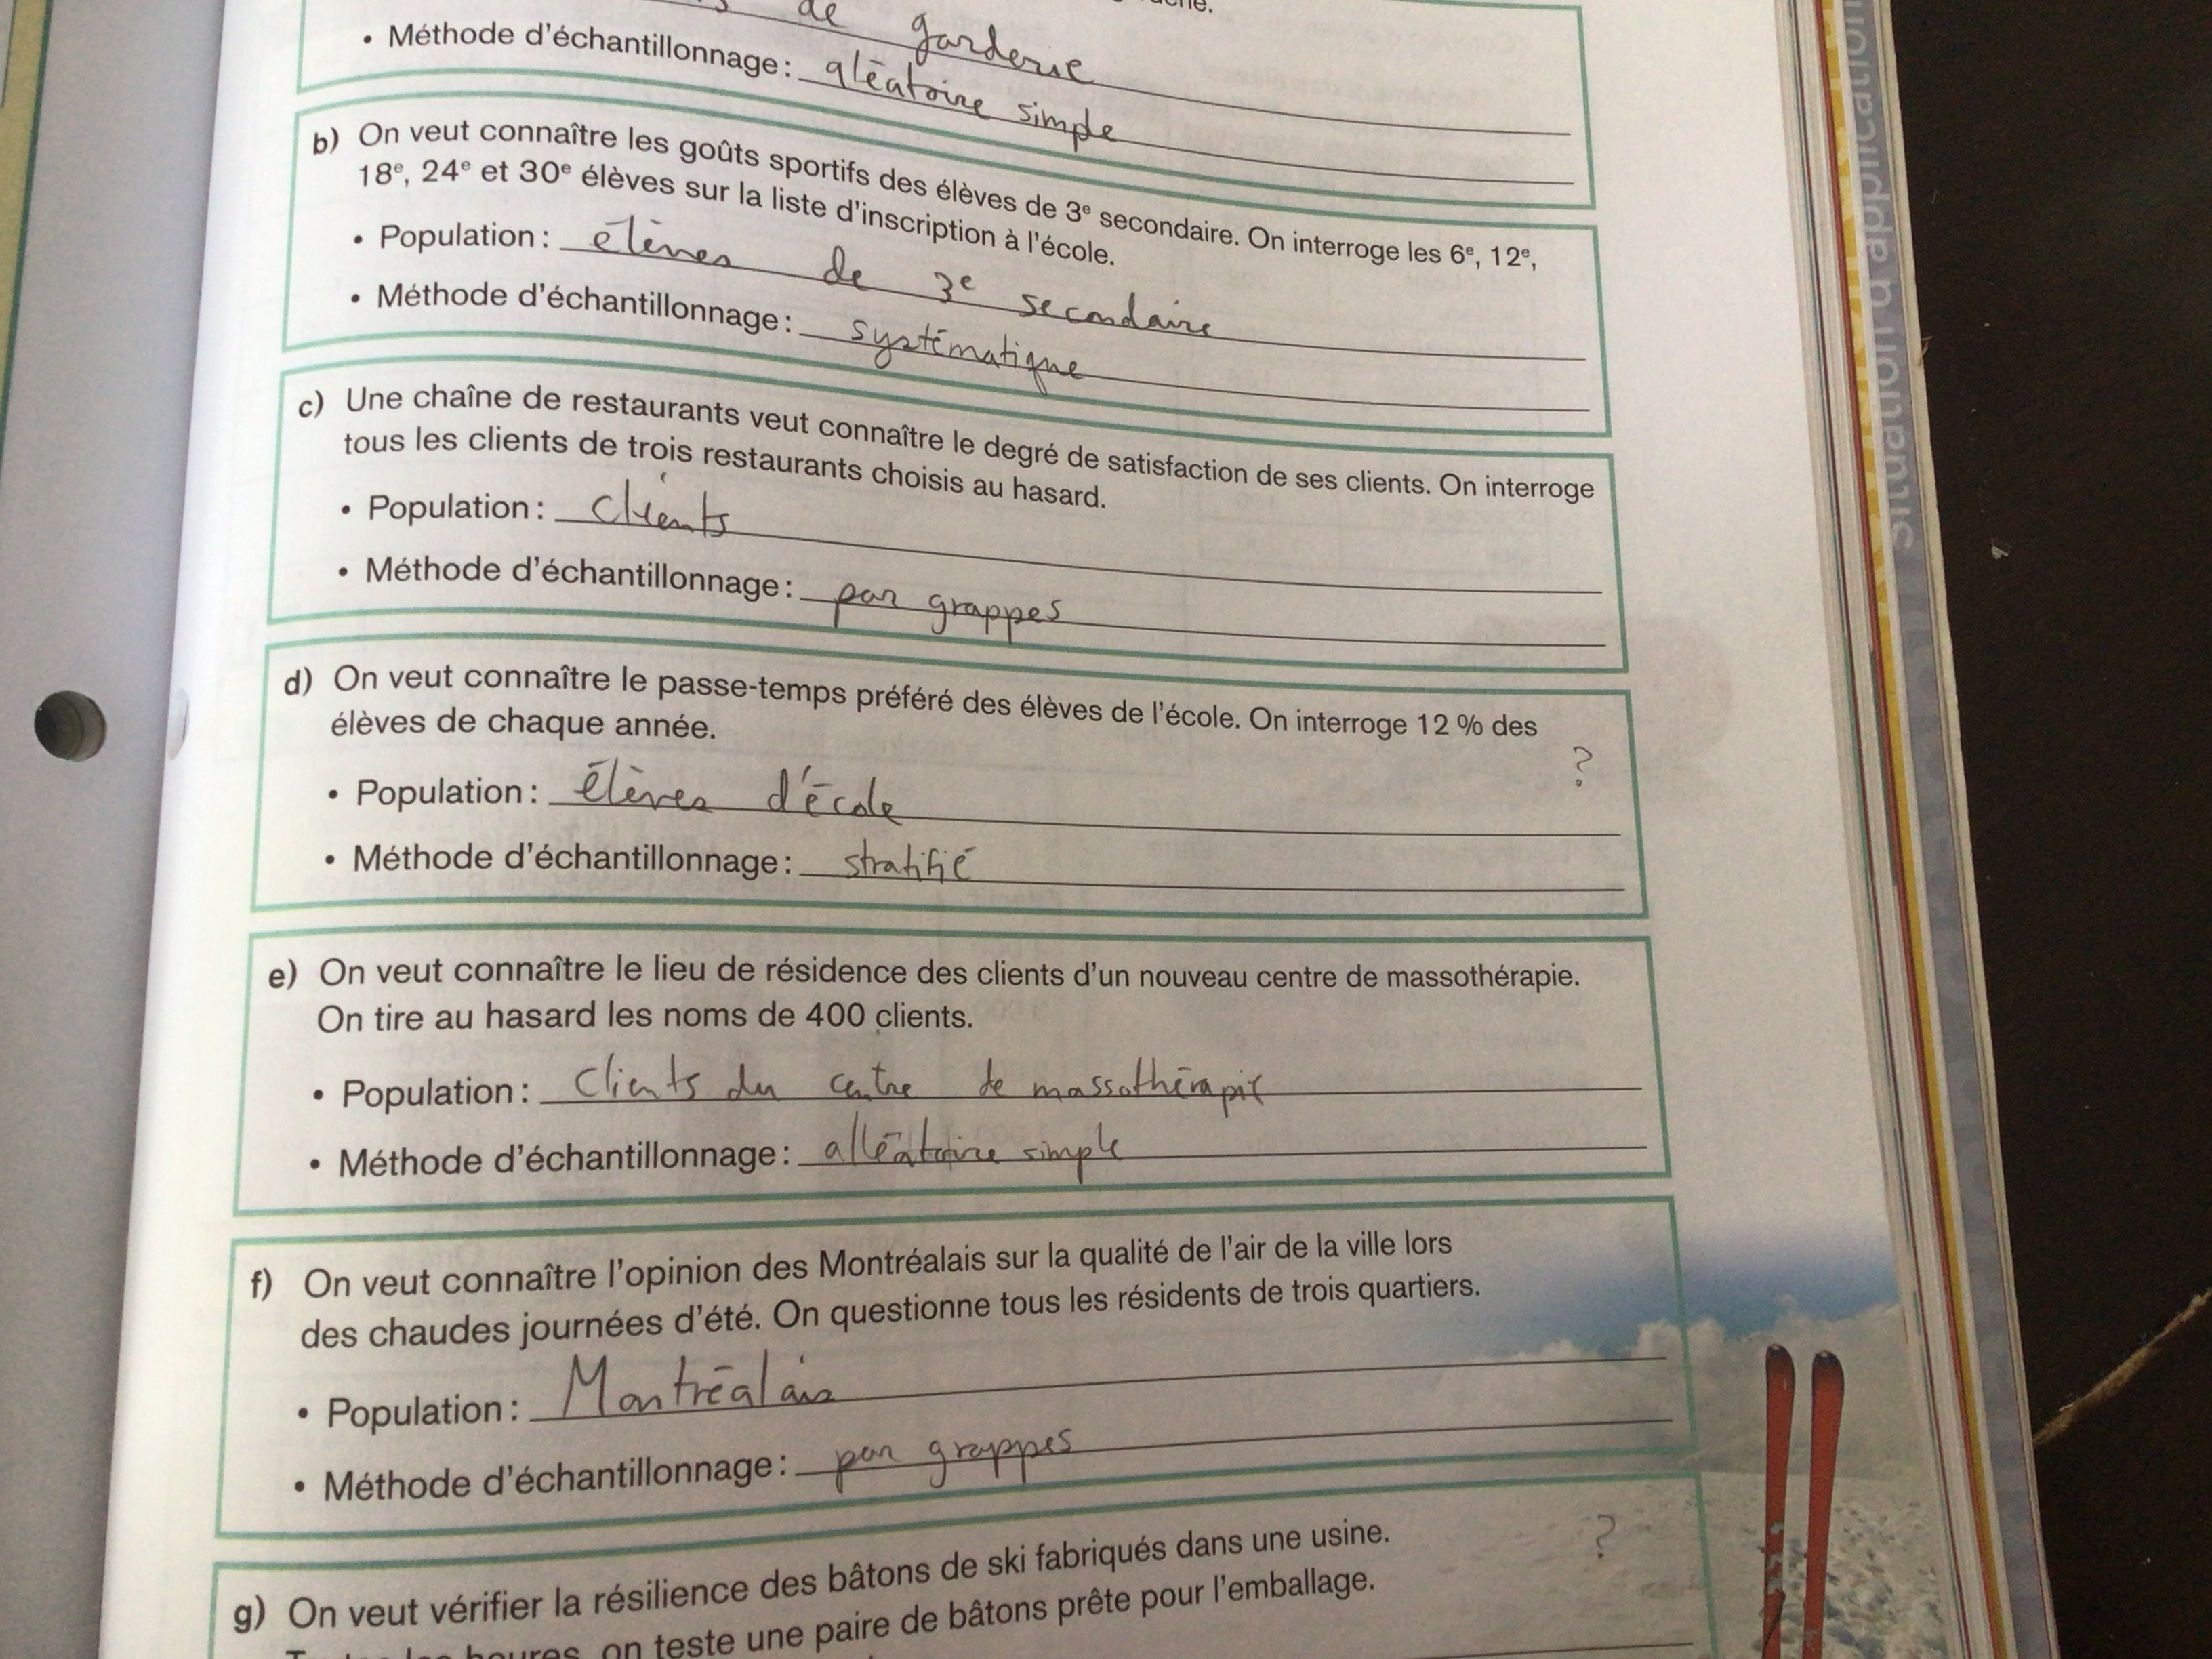 de garderie
• Méthode d'échantillonnage : aléatoire simple
b) On veut connaître les goûts sportifs des élèves de 3e secondaire. On interroge les 6e, 12e,
18e, 24e et 30e élèves sur la liste d'inscription à l'école.
• Population : élèves de 3e secondaire
• Méthode d'échantillonnage : systématique
c) Une chaîne de restaurants veut connaître le degré de satisfaction de ses clients. On interroge
tous les clients de trois restaurants choisis au hasard.
• Population : clients
• Méthode d'échantillonnage : par grappes
d) On veut connaître le passe-temps préféré des élèves de l'école. On interroge 12 % des
élèves de chaque année.
?
• Population : élèves d'école
• Méthode d'échantillonnage : stratifié
e) On veut connaître le lieu de résidence des clients d'un nouveau centre de massothérapie.
On tire au hasard les noms de 400 clients.
• Population : Clients du centre de massothérapie
• Méthode d'échantillonnage : alléatoire simple
f) On veut connaître l'opinion des Montréalais sur la qualité de l'air de la ville lors
des chaudes journées d'été. On questionne tous les résidents de trois quartiers.
• Population : Montréalais
• Méthode d'échantillonnage : par grappes
g) On veut vérifier la résilience des bâtons de ski fabriqués dans une usine.
?
heures, on teste une paire de bâtons prête pour l'emballage.
Situation d'application